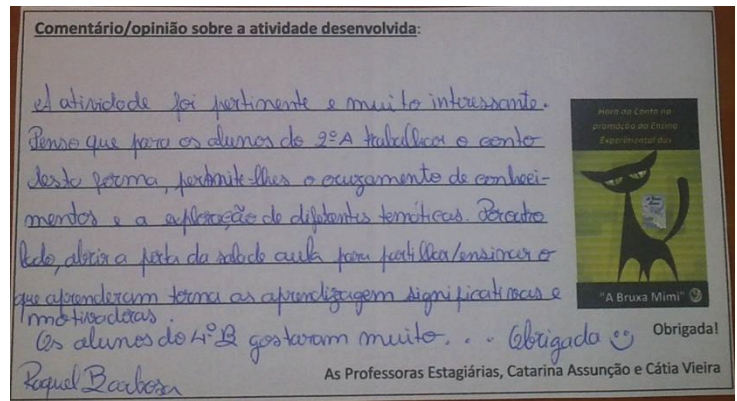 Comentário/opinião sobre a atividade desenvolvida:
A atividade foi pertinente e muito interessante.
Penso que para os alunos do 2ºA trabalhar o conto
desta forma, permite-lhes o cruzamento de conheci-
mentos e a exploração de diferentes temáticas. Por outro
lado, abrir a porta da sala de aula para partilhar/ensinar o
que aprenderam torna as aprendizagem significativas e
motivadoras.
Os alunos do 4ºB gostaram muito... Obrigada
Raquel Barbosa
Hora do Conto na
promoção do Ensino
Experimental das
"A Bruxa Mimi"
Obrigada!
As Professoras Estagiárias, Catarina Assunção e Cátia Vieira